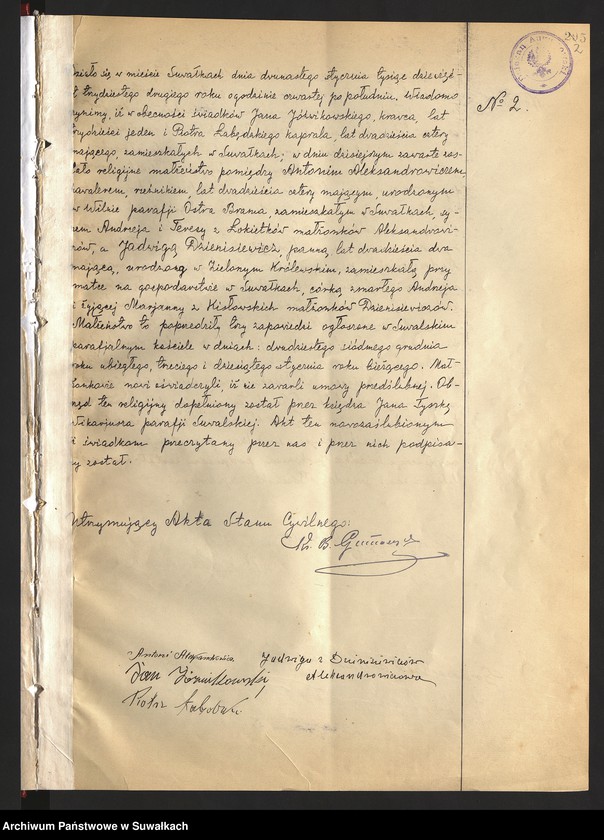 205
2
№ 2.
działo się w mieście Suwałkach dnia dwunastego stycznia tysiąc dziewięć-
t trzydziestego drugiego roku o godzinie czwartej po południu. Wiadomo
czynimy, iż w obecności świadków Jana Jóźwikowskiego, krawca, lat
trzydzieści jeden i Piotra Łabędzkiego kaprala, lat dwadzieścia cztery
mającego, zamieszkałych w Suwałkach; w dniu dzisiejszym zawarte zos-
tało religijne małżeństwo pomiędzy Antonim Aleksandrowiczem
kawalerem, rzeźnikiem, lat dwadzieścia cztery mającym, urodzonym
w Wilnie parafji Ostra Brama, zamieszkałym w Suwałkach, sy-
nem Andrzeja i Teresy z Łokietków małżonków Aleksandrowi-
czów, a Jadwigą Dzienisiewicz panną, lat dwadzieścia dwa
mającą, urodzoną w Zielonym Królewskim, zamieszkałą przy
matce na gospodarstwie w Suwałkach, córką zmarłego Andrzeja
i żyjącej Marjanny z Kisłowskich małżonków Dzienisiewiczów.
Małżeństwo to poprzedziły trzy zapowiedzi ogłoszone w Suwalskim
parafjalnym kościele w dniach: dwudziestego siódmego grudnia
roku ubiegłego, trzeciego i dziesiątego stycznia roku bieżącego. Mał-
żonkowie nowi oświadczyli, iż nie zawarli umowy przedślubnej. Ob-
rzęd ten religijny dopełniony został przez księdza Jana Łyszkę
wikarjusza parafji Suwalskiej. Akt ten nowozaślubionym
i świadkom przeczytany przez nas i przez nich podpisa-
ny został.
Utrzymujący Akta Stanu Cywilnego:
Ks. B.
Antoni Aleksandrowicz
Jadwiga z Dzienisiewiczów
Aleksandrowiczowa
Jan Jóźwikowski
Piotr Łabędzki
Archiwum Państwowe w Suwałkach